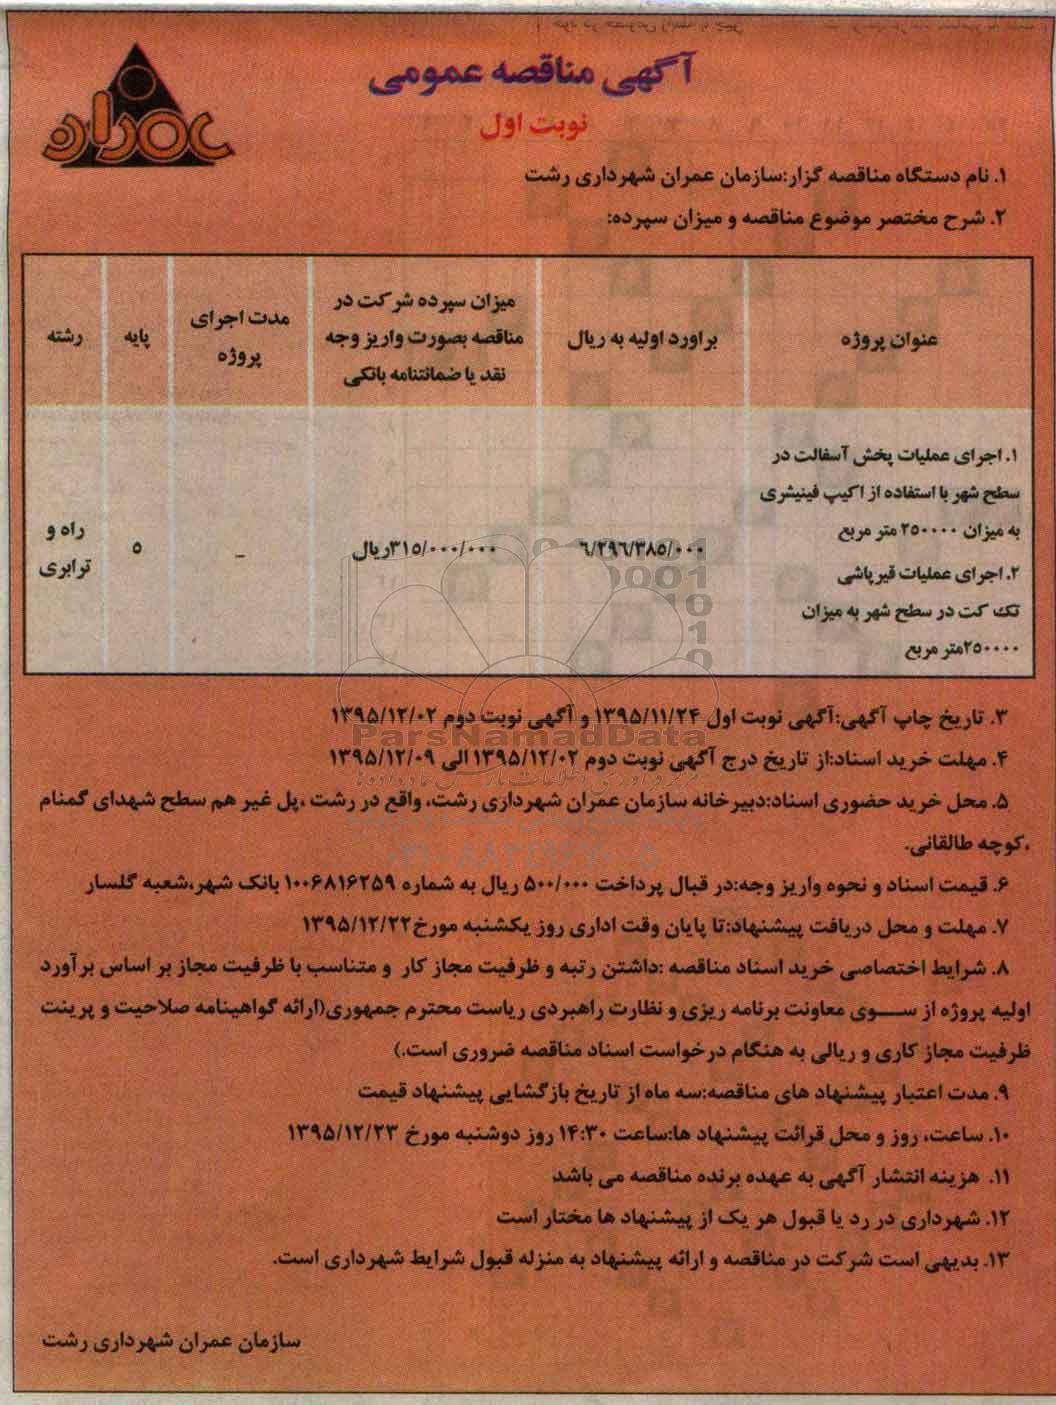 آگهی مناقصه عمومی
نوبت اول
عمران
۱. نام دستگاه مناقصه گزار:سازمان عمران شهرداری رشت
۲. شرح مختصر موضوع مناقصه و میزان سپرده:
عنوان پروژه
براورد اولیه به ریال
میزان سپرده شرکت در
مناقصه بصورت واریز وجه
نقد یا ضمانتنامه بانکی
مدت اجرای
پروژه
پایه
رشته
۱. اجرای عملیات پخش آسفالت در
سطح شهر با استفاده از اکیپ فینیشری
به میزان ۲۵۰۰۰۰ متر مربع
۲. اجرای عملیات قیرپاشی
تک کت در سطح شهر به میزان
۲۵۰۰۰۰متر مربع
۶/۲۹۶/۳۸۵/۰۰۰
۳۱۵/۰۰۰/۰۰۰ریال
_
۵
راه و
ترابری
۳. تاریخ چاپ آگهی:آگهی نوبت اول ۱۳۹۵/۱۱/۲۴ و آگهی نوبت دوم ۱۳۹۵/۱۲/۰۲
ParsNamadData
۴. مهلت خرید اسناد:از تاریخ درج آگهی نوبت دوم ۱۳۹۵/۱۲/۰۲ الی ۱۳۹۵/۱۲/۰۹
۵. محل خرید حضوری اسناد:دبیرخانه سازمان عمران شهرداری رشت، واقع در رشت ،پل غیر هم سطح شهدای گمنام
،کوچه طالقانی.
۰۲۱-۸۸۳۴۹۶۷۰-۵
۶. قیمت اسناد و نحوه واریز وجه:در قبال پرداخت ۵۰۰/۰۰۰ ریال به شماره ۱۰۰۶۸۱۶۲۵۹ بانک شهر،شعبه گلسار
۷. مهلت و محل دریافت پیشنهاد:تا پایان وقت اداری روز یکشنبه مورخ۱۳۹۵/۱۲/۲۲
۸. شرایط اختصاصی خرید اسناد مناقصه :داشتن رتبه و ظرفیت مجاز کار و متناسب با ظرفیت مجاز بر اساس برآورد
اولیه پروژه از سوی معاونت برنامه ریزی و نظارت راهبردی ریاست محترم جمهوری(ارائه گواهینامه صلاحیت و پرینت
ظرفیت مجاز کاری و ریالی به هنگام درخواست اسناد مناقصه ضروری است.)
۹. مدت اعتبار پیشنهاد های مناقصه:سه ماه از تاریخ بازگشایی پیشنهاد قیمت
۱۰. ساعت، روز و محل قرائت پیشنهاد ها:ساعت ۱۴:۳۰ روز دوشنبه مورخ ۱۳۹۵/۱۲/۲۳
۱۱. هزینه انتشار آگهی به عهده برنده مناقصه می باشد
۱۲. شهرداری در رد یا قبول هر یک از پیشنهاد ها مختار است
۱۳. بدیهی است شرکت در مناقصه و ارائه پیشنهاد به منزله قبول شرایط شهرداری است.
سازمان عمران شهرداری رشت